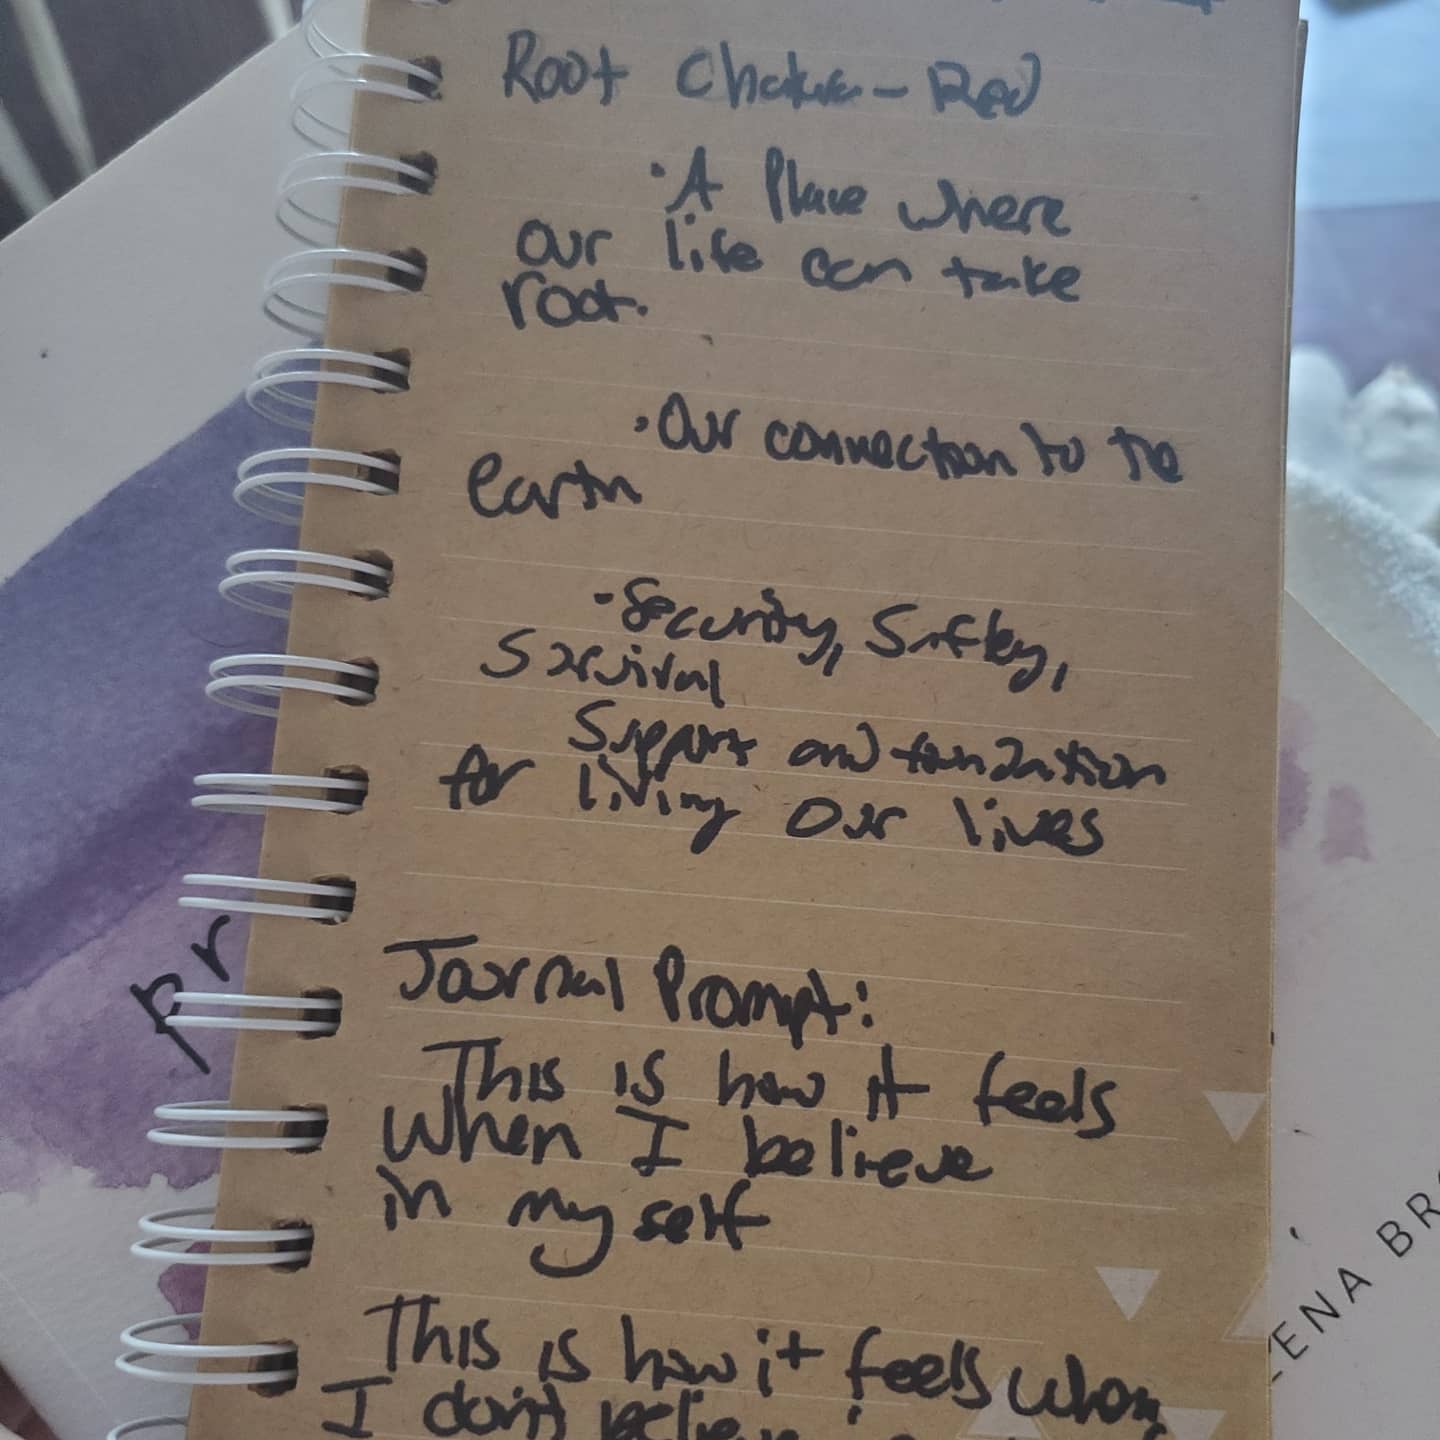 Root Chakra - Red
· A Place where
our life can take
root.
· Our connection to the
earth
- Security, Safety,
Survival
Support and foundation
for living our lives
Journal Prompt:
This is how it feels
when I believe
in my self
This is how it feels when
I don't believe in
pr
ENA BR